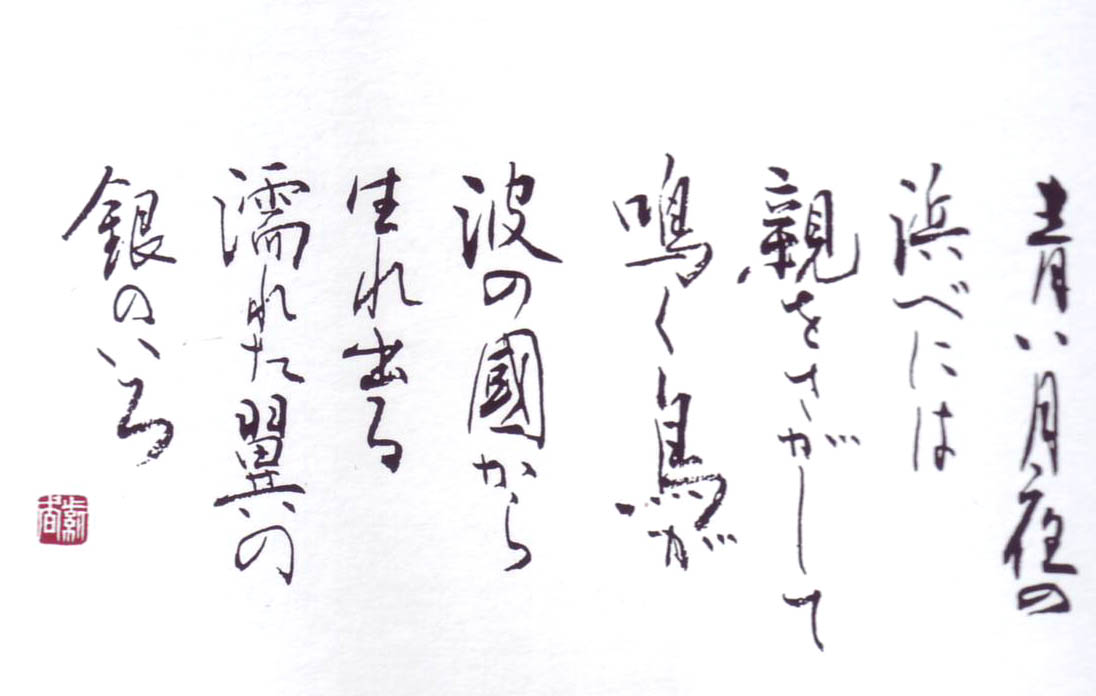 青い月夜の
浜べには
親をさがして
鳴く鳥が
波の國から
生れ出る
濡れた翼の
銀のいろ
紫香